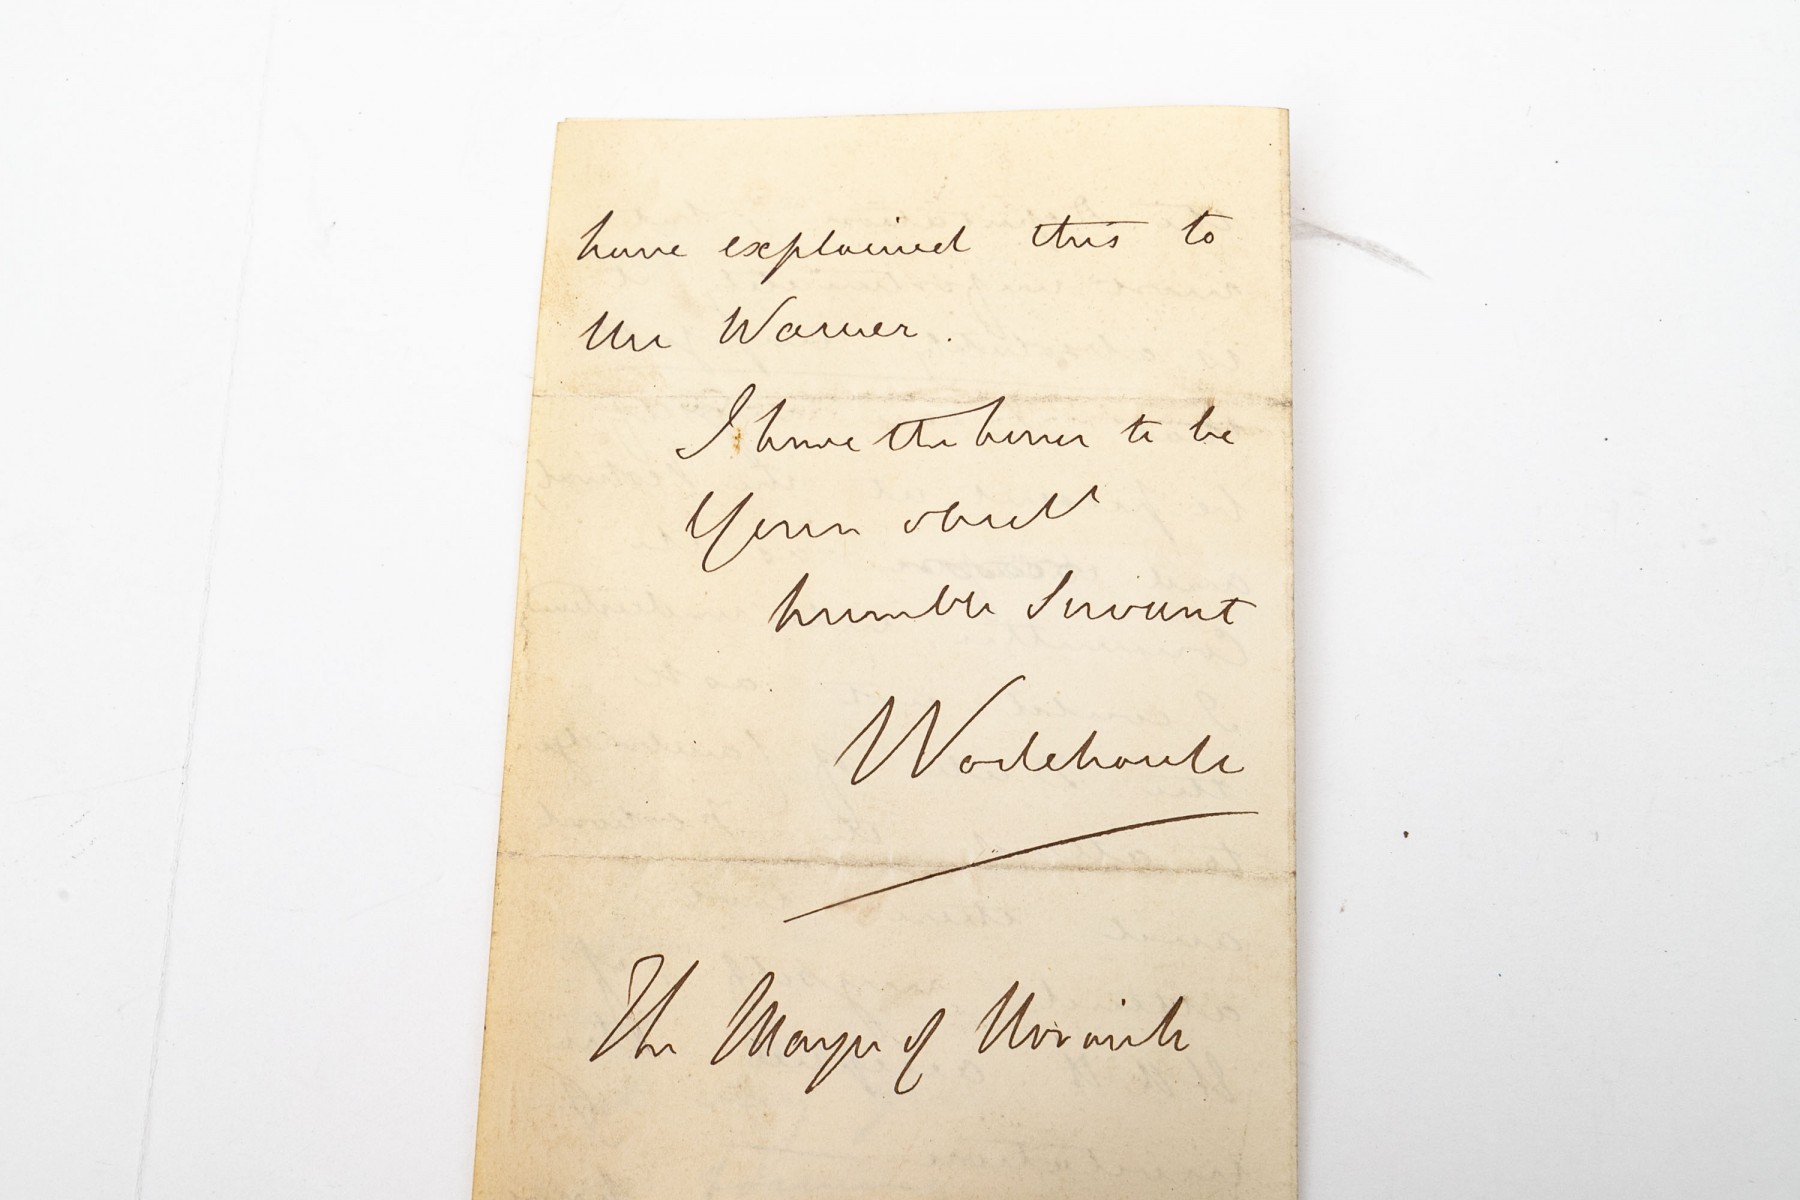 have explained this to
Mr Warner.
I have the honor to be
Your obedt
humble Servant
Wodehouse
The Mayor of Norwich